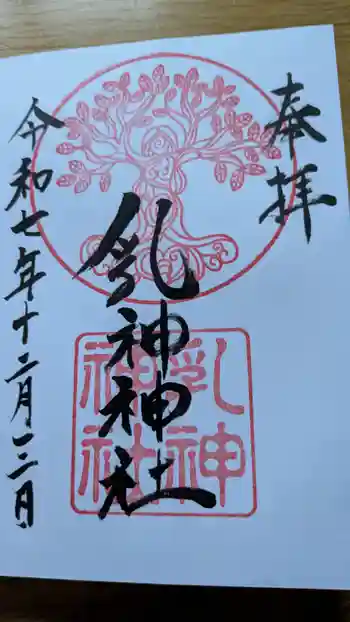 奉拝
乳神神社
乳神
神社
令和七年十二月一二日